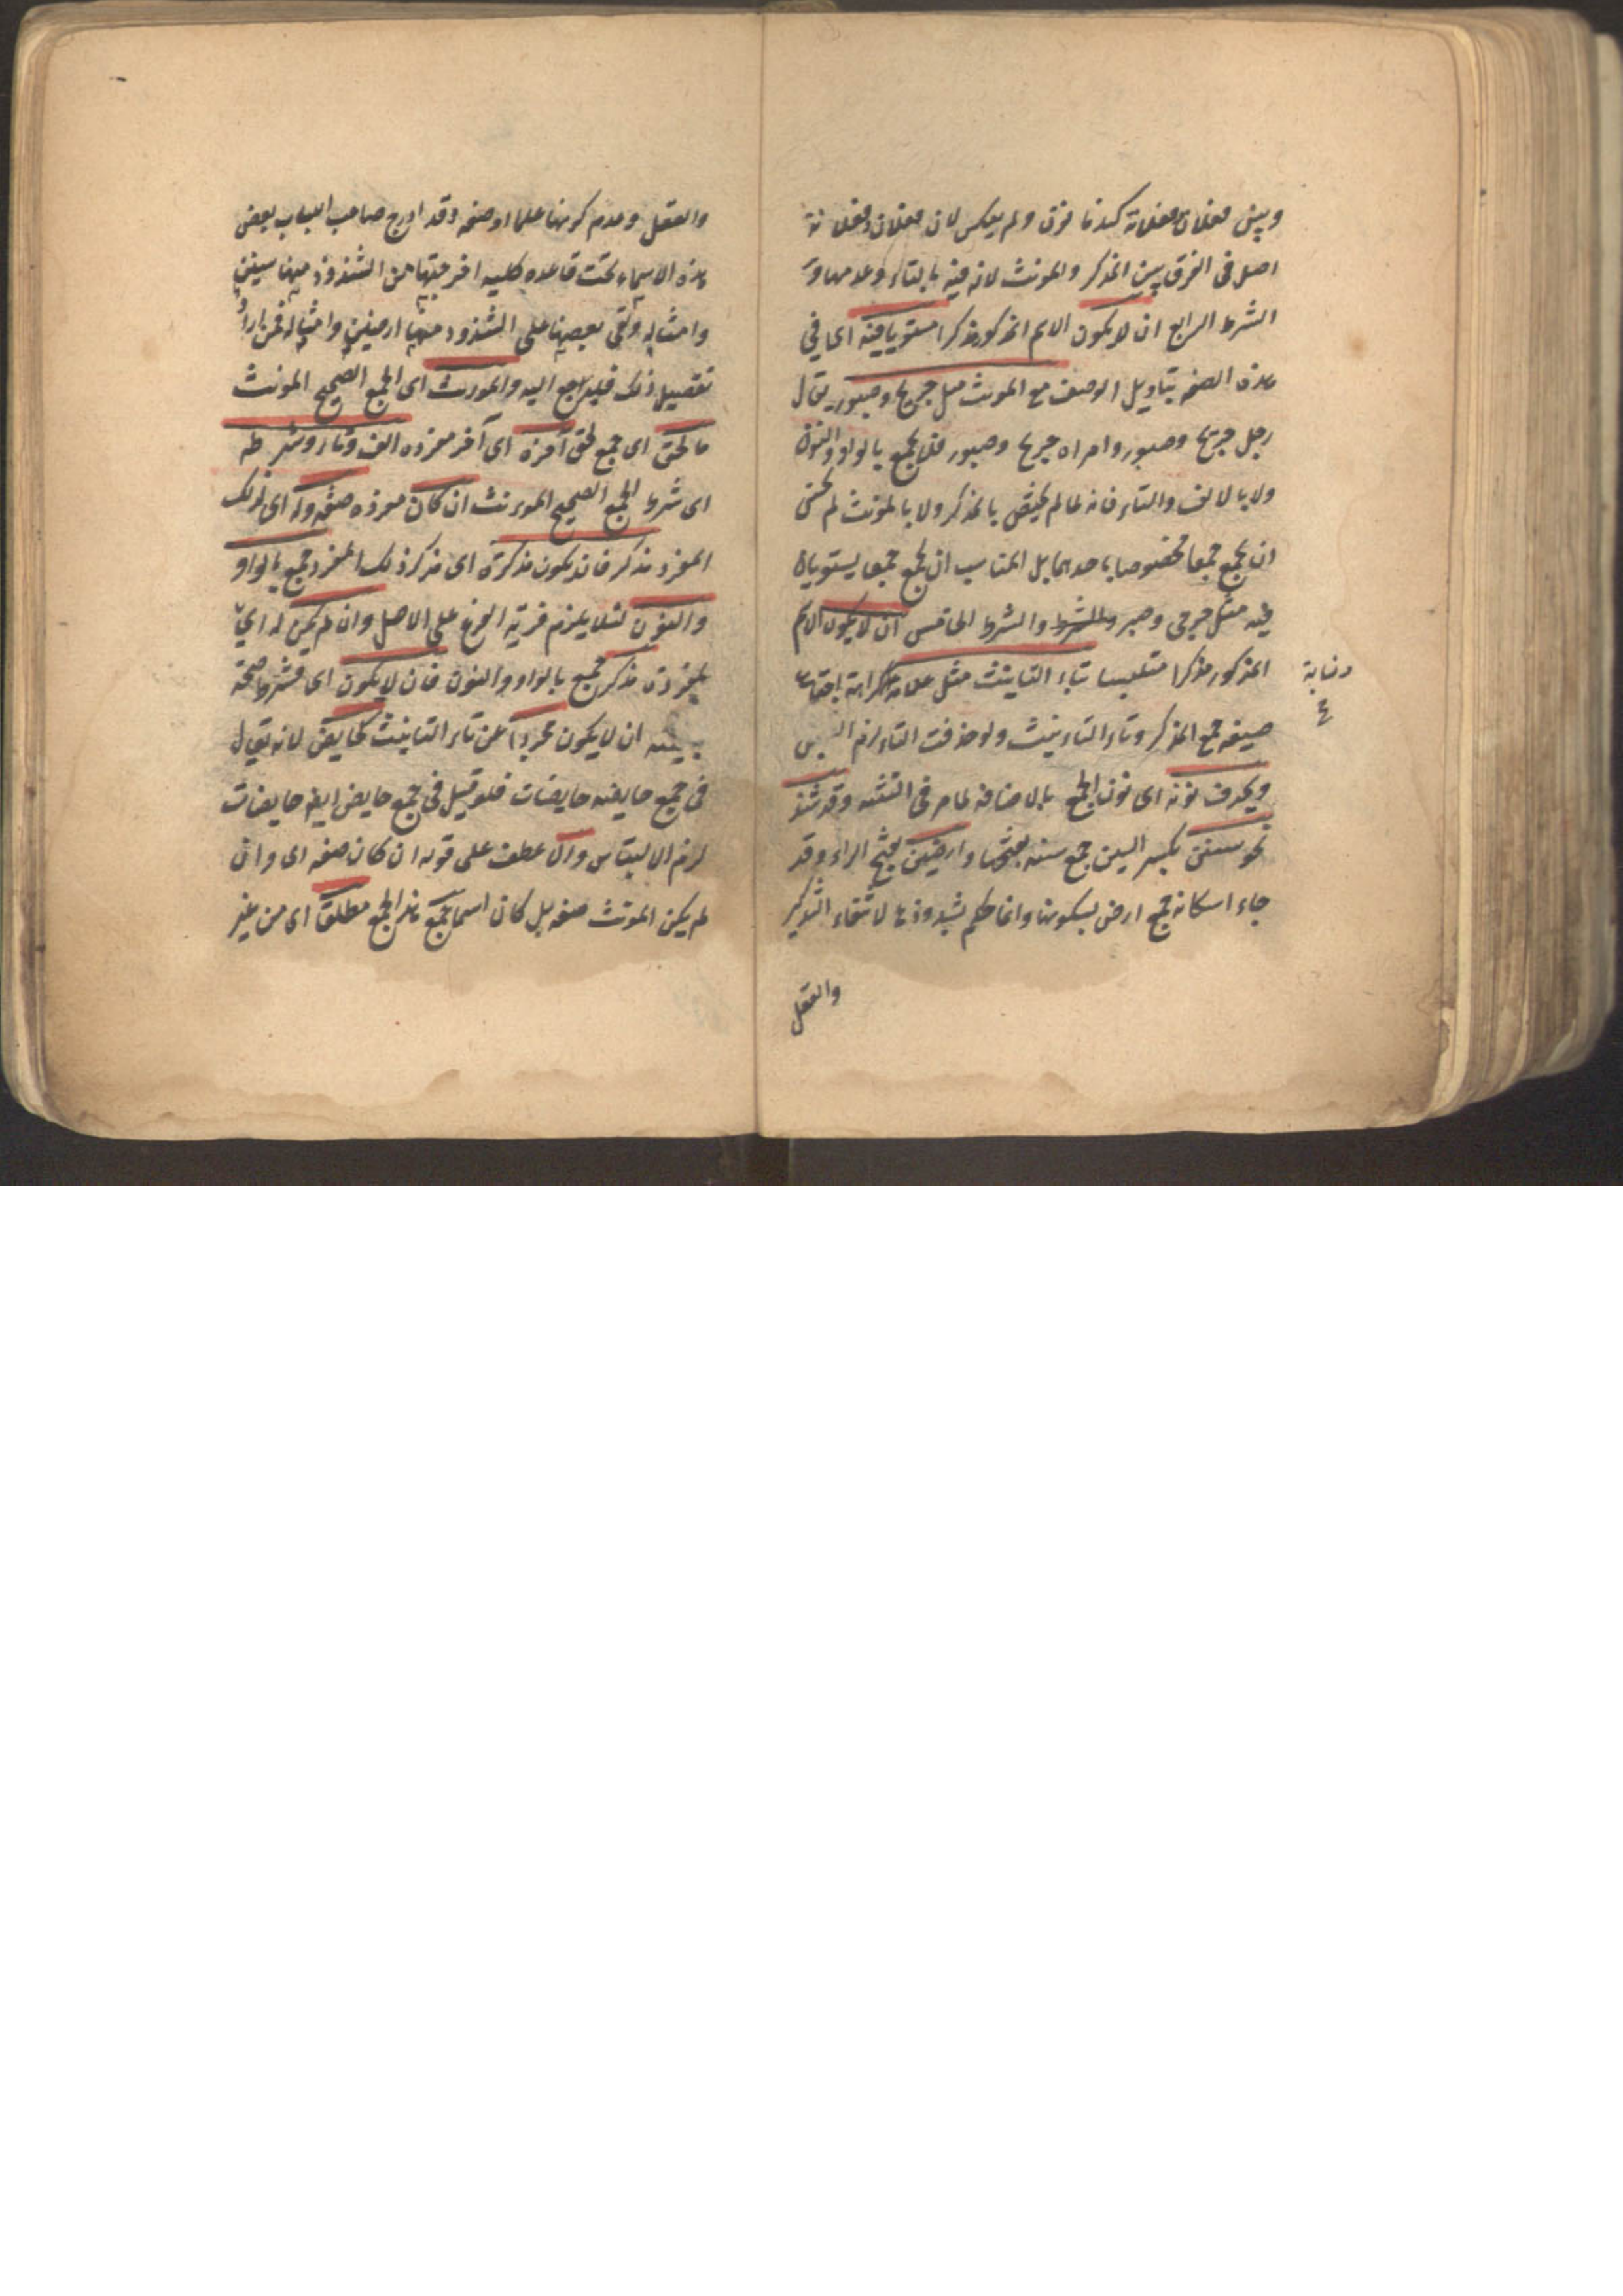 وبين فعلان فعلانة كندمانون ولم يعكس لان فعلان وفعلانة
اصل فى الفرق بين المذكر والمونث لانه فيه بالتاء وعدمها و
الشرط الرابع ان لا يكون الاسم المذكور مذكرا مستويا فيه اى فى
هذه الصفه بتاويل الوصف مع المونث مثل جريح وصبور يقال
رجل جريح وصبور وامراه جريح وصبور فلا يجمع بالواو والنون
ولا بالالف والتاء فانه لما لم يختص بالمذكر ولا بالمونث لم يحسن
ان يجمع جمعا مخصوصا باحدهما بل المناسب ان يجمع جمعا يستويان
فيه مثل جرحى وصبر والشرط والشرط الخامس ان لا يكون الاسم
المذكور مذكرا متلبسا بتاء التانيث مثل علامة كراهة اجتماع
صيغه جمع المذكر وتاء التانيث ولو حذفت التاء لزم اللبس
ويحذف نونه اى نون الجمع بالاضافه لما مر فى التثنيه وقد شذ
نحو سنين بكسر السين جمع سنه بفتحها وارضين بفتح الراء وقد
جاء اسكانه جمع ارض بسكونها وانما حكم بشذوذها لانتفاء التذكير
والعقل
والعقل وعدم كونها علما او صفه وقد ادرج صاحب اللباب بعض
هذه الاسماء تحت قاعده كليه اخرجتها من الشذوذ منها سنين
وامثاله وبقى بعضها على الشذوذ منها ارضين وامثاله فمن اراد
تفصيل ذلك فليراجع اليه والمونث اى الجمع الصحيح المونث
ما لحق اى جمع لحق آخره اى آخر مفرده الف وتاء وشرطه
اى شرط الجمع الصحيح المونث ان كان مفرده صفه وله اى لذلك
المفرد مذكر فان يكون مذكره اى مذكر ذلك المفرد جمع بالواو
والنون لئلا يلزم مزية الفرع على الاصل وان لم يكن له اى
لمفرده مذكر جمع بالواو والنون فان لا يكون اى فشرط صحة
ان لا يكون مجردا عن تاء التانيث كحايض لانه يقال
فى جمع حايضه حايضات فلو قيل فى جمع حايض ايضا حايضات
لزم الالتباس والا عطف على قوله ان كان صفه اى وان
لم يكن المونث صفه بل كان اسما جمع هذا الجمع مطلقا اى من غير